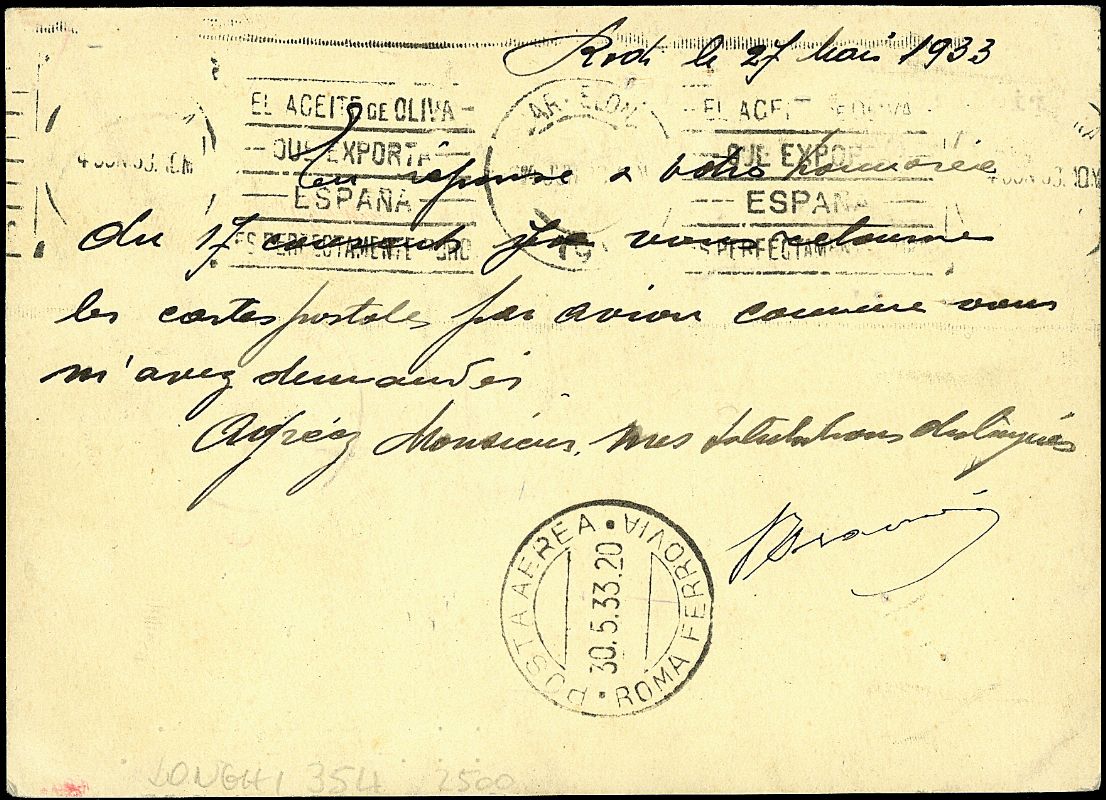 Rodi le 27 Mai 1933
EL ACEITE DE OLIVA
QUE EXPORTA
ESPAÑA
ES PERFECTAMENTE
4 JUN 33.10.M
EL ACEIT E OLIVA
QUE EXPOR
ESPAÑA
S PERFECTAM
4 JUN 33.10M
En réponse a votre honorée
du 17 courant je vous retourne
les cartes postales par avion comme vous
m'avez demandés
Agréez Monsieur, mes salutations distinguées
POSTA AEREA · ROMA FERROVIA ·
30.5.33.20
LONGHI 354 2500